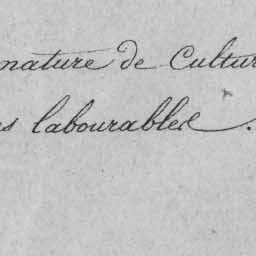 nature de Cultur
es labourables.